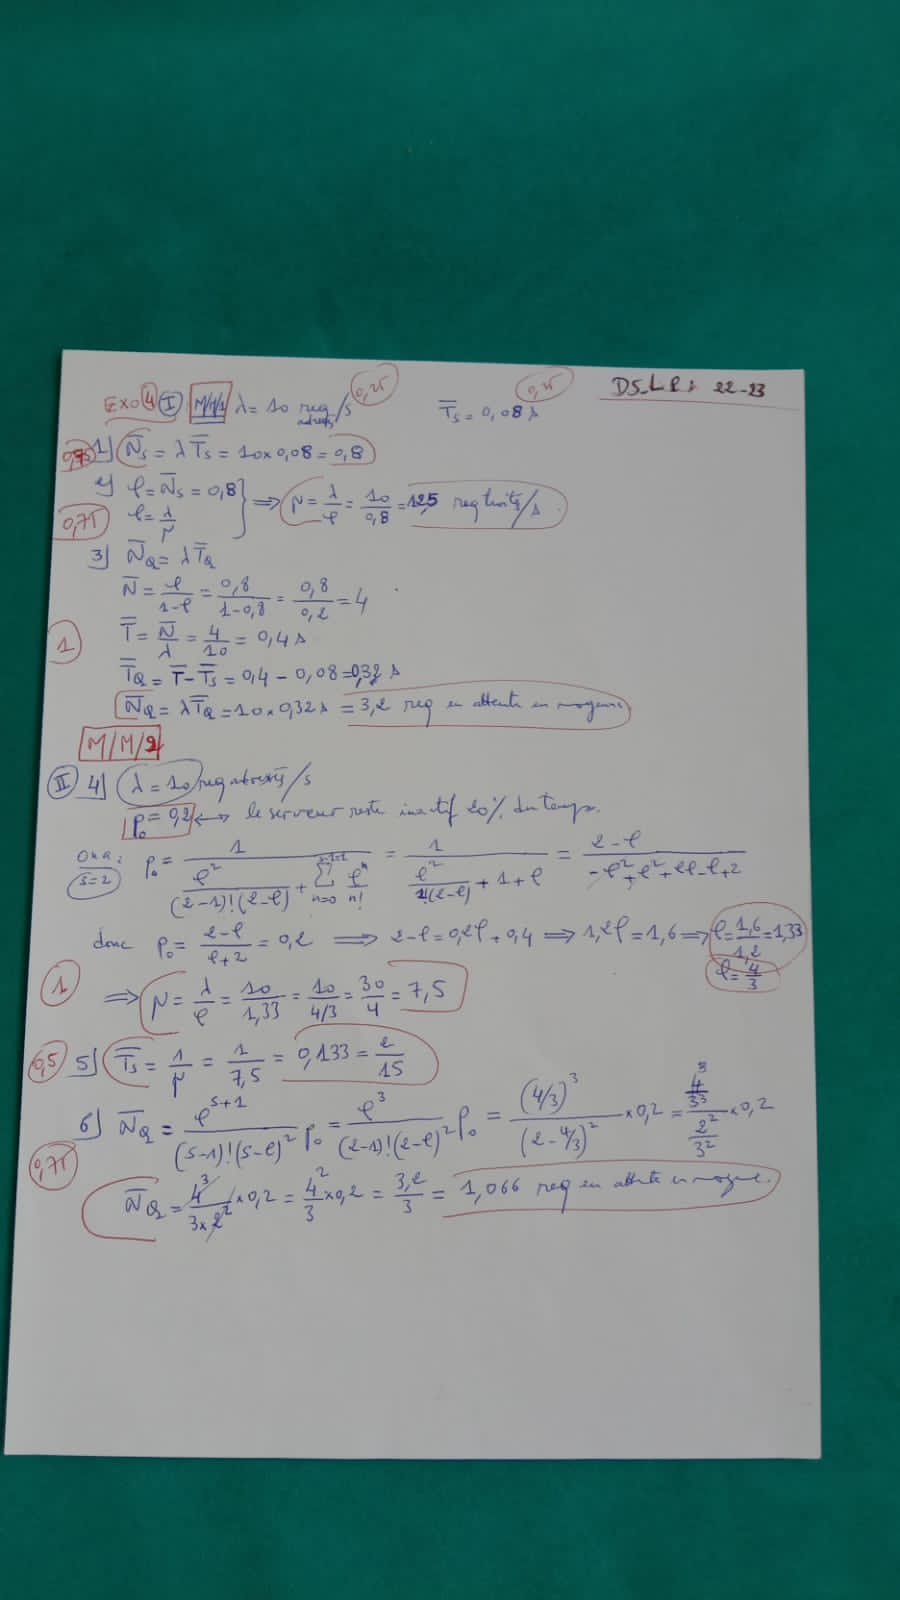 DS_LRI 22-23
EXO 4 I M/M/1 λ = 10 req adressées/s 0,25 T̅s = 0,08 s 0,25
0,75 1) N̅s = λ T̅s = 10 x 0,08 = 0,8
2) ρ = N̅s = 0,8 } ⟹ μ = λ/ρ = 10/0,8 = 12,5 req traités/s
0,75 ρ = λ/μ
3) N̅Q = λ T̅Q
N̅ = ρ/(1-ρ) = 0,8/(1-0,8) = 0,8/0,2 = 4
1 T̅ = N̅/λ = 4/10 = 0,4 s
T̅Q = T̅ - T̅s = 0,4 - 0,08 = 0,32 s
N̅Q = λ T̅Q = 10 x 0,32 s = 3,2 req en attente en moyenne
M/M/2
II 4) λ = 10 req adressées/s
P₀ = 0,2 ⟷ le serveur reste inactif 20% du temps.
On a : s=2 P₀ = 1/(ρ²/((2-1)!(2-ρ)) + Σ_{n=0}^{s-1=1} ρⁿ/n!) = 1/(ρ²/(1!(2-ρ)) + 1 + ρ) = (2-ρ)/(-ρ²+ρ²+2ρ-ρ+2)
donc P₀ = (2-ρ)/(ρ+2) = 0,2 ⟹ 2-ρ = 0,2ρ + 0,4 ⟹ 1,2ρ = 1,6 ⟹ ρ = 1,6/1,2 = 1,33
ρ = 4/3
1 ⟹ μ = λ/ρ = 10/1,33 = 10/4/3 = 30/4 = 7,5
0,5 5) T̅s = 1/μ = 1/7,5 = 0,133 = 2/15
6) N̅Q = ρ^{s+1}/((s-1)!(s-ρ)²) P₀ = ρ³/((2-1)!(2-ρ)²) P₀ = (4/3)³/(2-4/3)² x 0,2 = (4³/3³)/(2²/3²) x 0,2
0,75 N̅Q = 4³/(3x2²) x 0,2 = 4²/3 x 0,2 = 3,2/3 = 1,066 req en attente en moyenne.